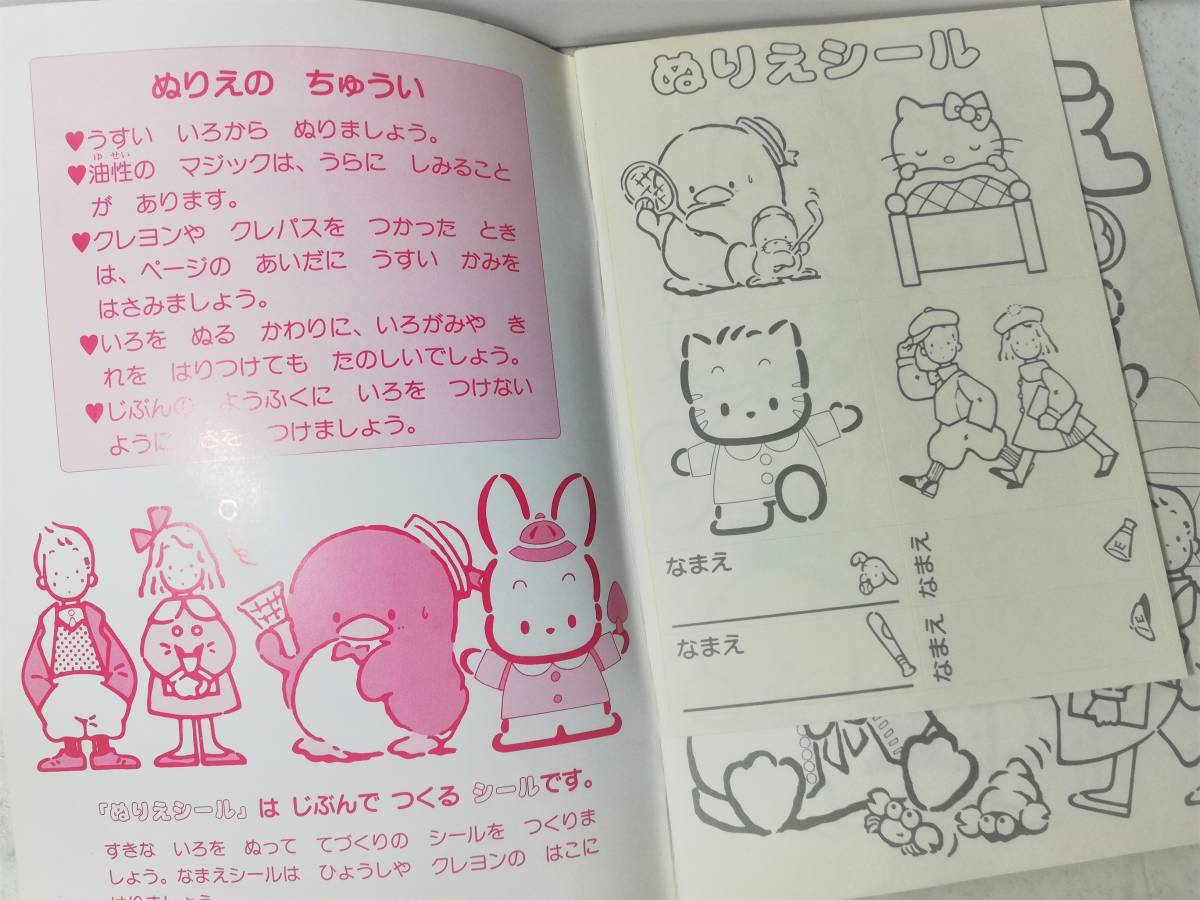 ぬりえの ちゅうい
♥うすい いろから ぬりましょう。
ゆ せい
♥油性の マジックは、うらに しみること
が あります。
♥クレヨンや クレパスを つかった とき
は、ページの あいだに うすい かみを
はさみましょう。
♥いろを ぬる かわりに、いろがみや き
れを はりつけても たのしいでしょう。
♥じぶんの ようふくに いろを つけない
ように きを つけましょう。
「ぬりえシール」は じぶんで つくる シールです。
すきな いろを ぬって てづくりの シールを つくりま
しょう。なまえシールは ひょうしや クレヨンの はこに
はりましょう
ぬりえシール
なまえ
なまえ
なまえ
なまえ
E
E